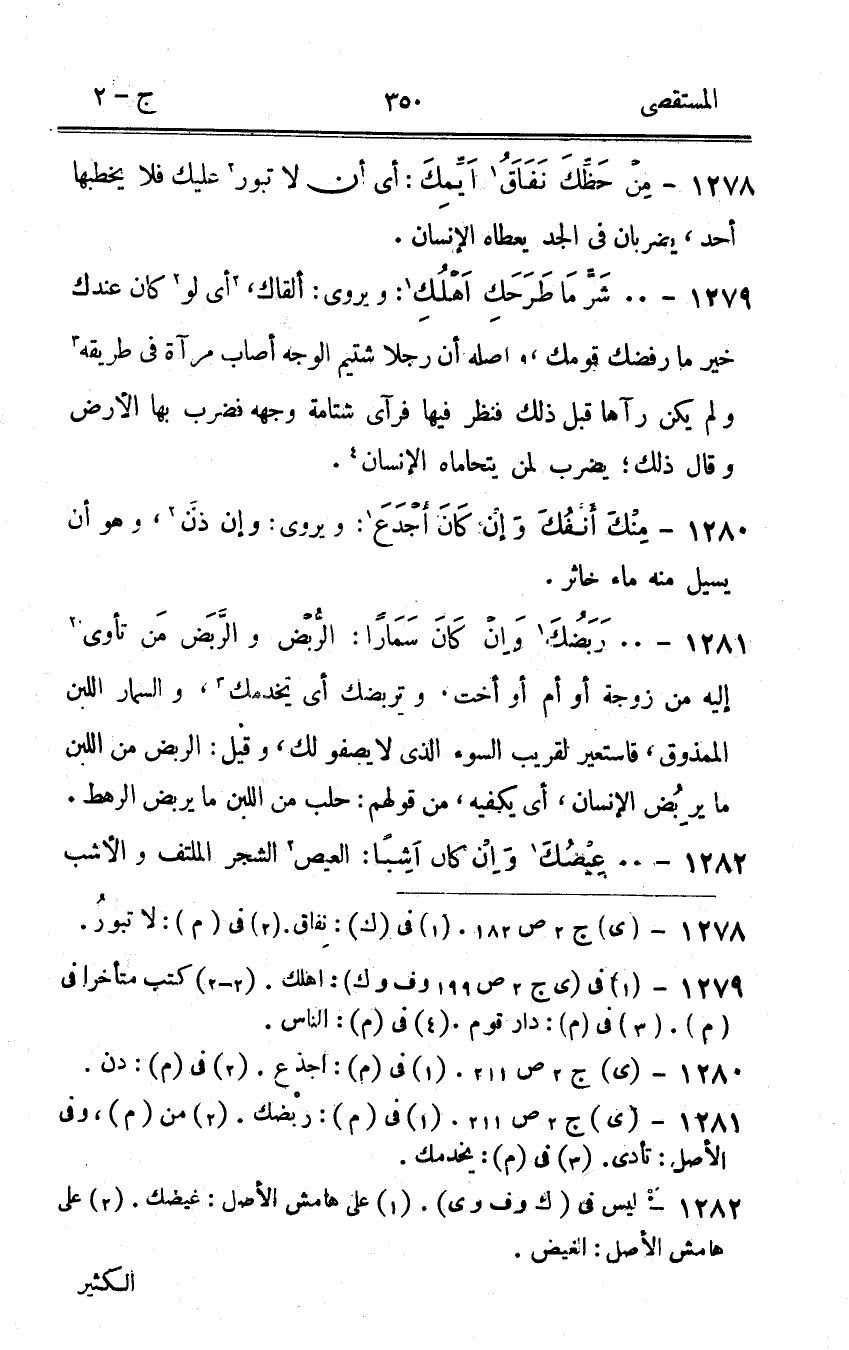 المستقصى ٣٥٠ ج – ٢
١٢٧٨ – مِنْ حَظِّكَ نَفَاقُ١ اَيِّمِكَ : أى أن لا تبور٢ عليك فلا يخطبها
أحد ، يضربان فى الجد يعطاه الإنسان .
١٢٧٩ – ٠٠ شَرٍّ مَا طَرَحَكِ اَهْلُكِ١ : و يروى : ألقاك، ٢أى لو٢ كان عندك
خير ما رفضك قومك ،، اصله أن رجلا شتيم الوجه أصاب مرآة فى طريقه٣
و لم يكن رآها قبل ذلك فنظر فيها فرآى شتامة وجهه فضرب بها الأرض
و قال ذلك ؛ يضرب لمن يتحاماه الإنسان٤ .
١٢٨٠ – مِنْكَ أَنْفُكَ وَ إنْ كَانَ أجْدَعَ١ : و يروى : و إن ذنَّ٢ ، و هو أن
يسيل منه ماء خاثر .
١٢٨١ – ٠٠ رَبَضُكَ١ وَ إنْ كَانَ سَمَارًا : الرُّبْض و الرَّبَض مَن تأوى٢
إليه من زوجة أو أم أو أخت ٠ و تربضك أى تخدمك٣ ، و السمار اللبن
الممذوق ، فاستعير لقريب السوء الذى لا يصفو لك ، و قيل : الربض من اللبن
ما يربُض الإنسان ، أى يكفيه ، من قولهم : حلب من اللبن ما يربض الرهط .
١٢٨٢ – ٠٠ عِيْصُكَ١ وَ اِنْ كان اَشِبًا : العيص٢ الشجر الملتف و الأشب
١٢٧٨ – (ى) ج ٢ ص ١٨٢ . (١) فى (ك) : نفاق . (٢) فى ( م ) : لا تبورُ .
١٢٧٩ – (١) فى (ى ج ٢ ص ١٩٩ و ف و ك) : اهلك . (٢-٢) كتب متأخرا فى
( م ) . ( ٣ ) فى (م) : دار قوم . (٤) فى (م) : الناس .
١٢٨٠ – (ى) ج ٢ ص ٢١١ . (١) فى (م) : اجذع . (٢) فى (م) : دن .
١٢٨١ – ( ى ) ج ٢ ص ٢١١ . (١) فى ( م ) : ربْضك . (٢) من ( م ) ، و فى
الأصل : تأدى . (٣) فى (م) : يخدمك .
١٢٨٢ – ليس فى ( ك و ف و ى ) . (١) على هامش الأصل : غيضك . (٢) على
هامش الأصل : الغيض .
الكثير